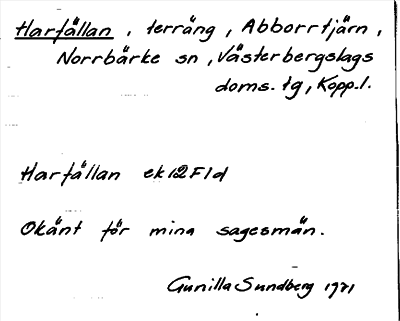 Harfällan, terräng, Abborrtjärn,
Norrbärke sn, Västerbergslags
doms. tg, Kopp. l.
Harfällan ek 12F1d
Okänt för mina sagesmän.
Gunilla Sundberg 1971